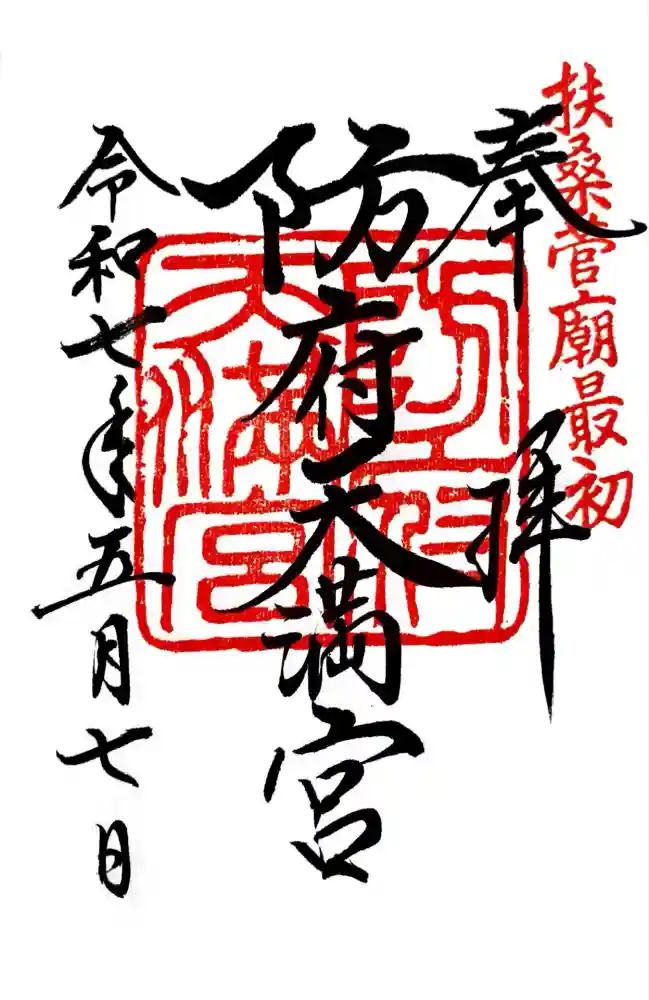 扶桑菅廟最初
奉拝
防府天満宮
令和七年五月七日
防府天満宮